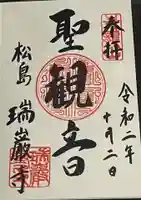 奉拝
令和二年
十月二日
聖観音
松島
瑞巌寺